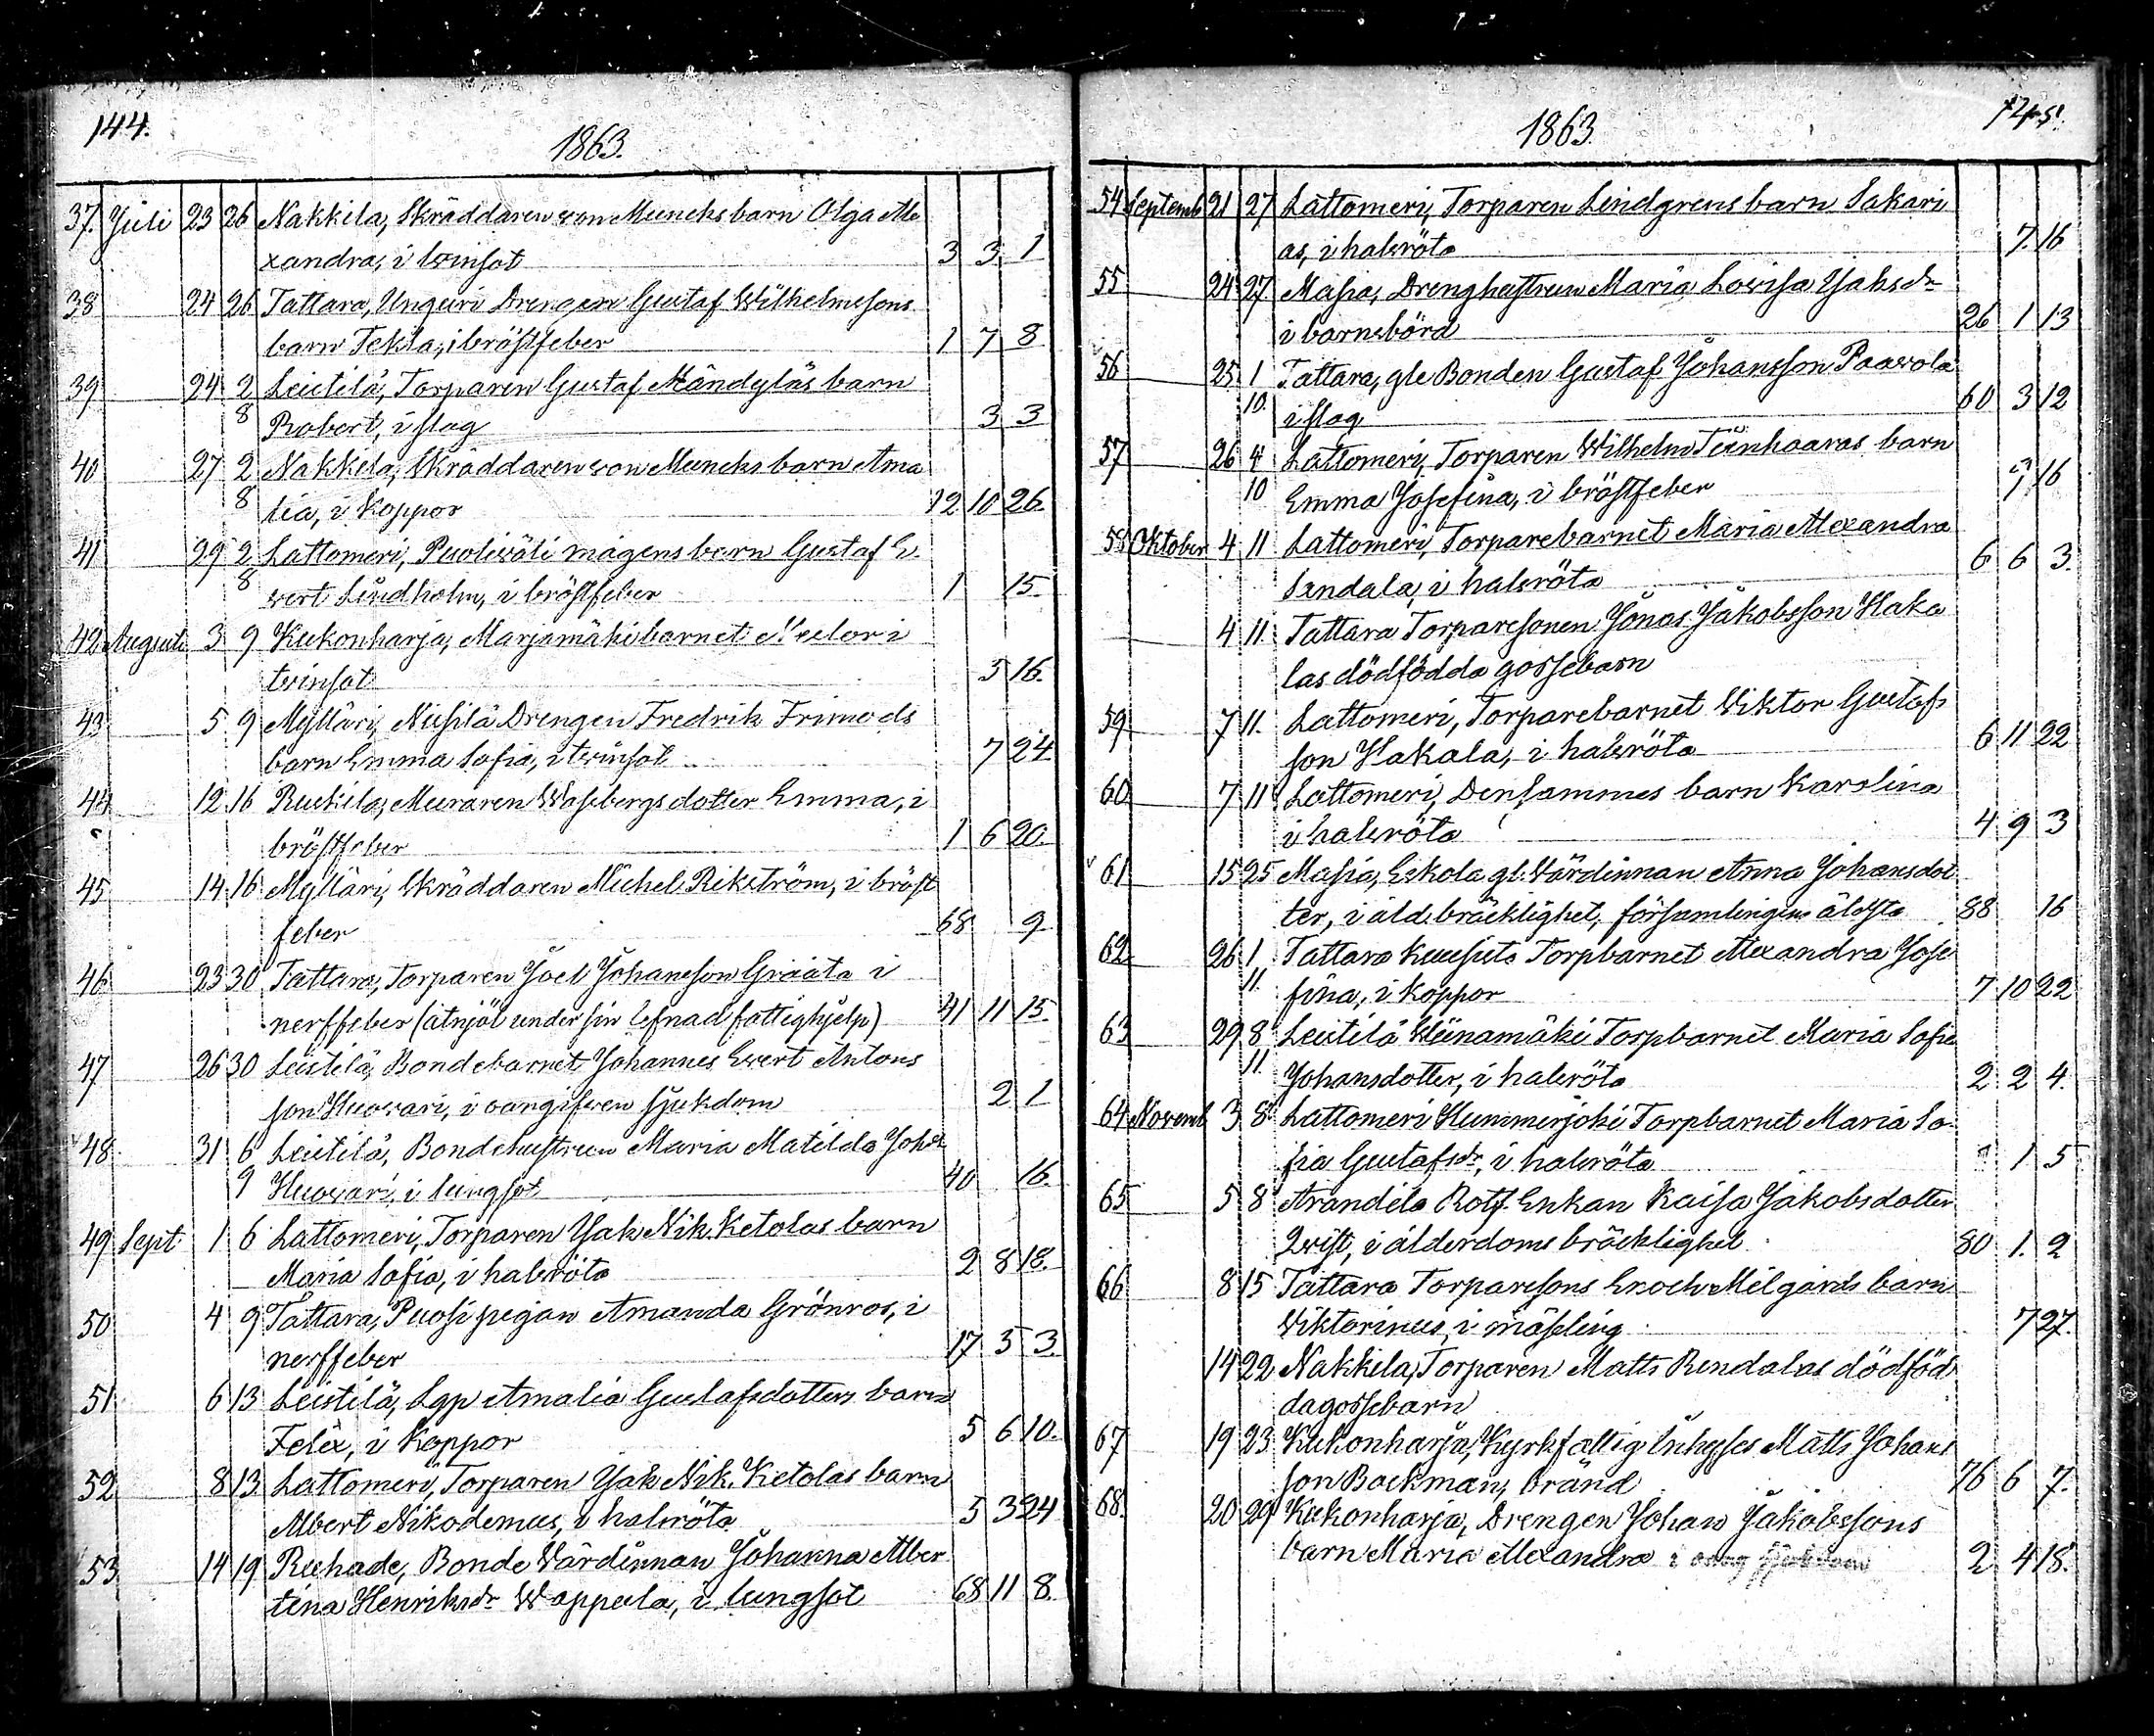 144.
1863.
37. Juli 23 26 Nakkila, Skräddaren von Muncks barn Olga Ale
xandra, i twinsot 3 3 1
38 24 26 Tattara, Unguri Drengen Gustaf Wilhelmssons
barn Tekla, i bröstfeber 1 7 8
39 24 2 Leistilä, Torparen Gustaf Mändyläs barn
8 Robert, i slag 3 3
40 27 2 Nakkila, Skräddaren von Muncks barn Ama
8 lia, i Koppor 12 10 26.
41 29 2 Lattomeri, Puoliväli mågens barn Gustaf E
8 vert Lindholm, i bröstfeber 1 15.
42 Augusti 3 9 Kukonharja, Marjamäki barnet i
twinsot 5 16.
43 5 9 Mylläri, Niisilä Drengen Fredrik Frimods
barn Emma Sofia, i twinsot 7 24
44 12 16 Ruskila, Muraren Wasebergs dotter Emma, i
bröstfeber 1 6 20.
45 14 16 Mylläri, Skräddaren Michel Rikström, i bröst
feber 68 9
46 23 30 Tattara, Torparen Joel Johansson Graata i
nerffeber (åtnjöt under sin lefnad fattighjelp) 41 11 15.
47 26 30 Leistilä, Bondebarnet Johannes Evert Antons
son Huovari, i oangifven sjukdom 2 1
48. 31 6 Leistilä, Bondehustrun Maria Matilda Johsdr
9 Huovari, i lungsot 40 16.
49 Sept 1 6 Lattomeri, Torparen Jak Nik. Ketolas barn
Maria Sofia, i halsröta 2 8 18.
50 4 9 Tattara, Puosi pigan Amanda Grönros, i
nerffeber 17 5 3.
51 6 13 Leistilä, Lgp Amalia Gustafsdotters barn
Felix, i Koppor 5 6 10.
52 8 13 Lattomeri, Torparen Jak Nik. Ketolas barn
Albert Nikodemus, i halsröta 5 3 24
53 14 19 Ruhade, Bonde Värdinnan Johanna Alber
tina Henriksdr Wappula, i lungsot 68 11 8.
145.
1863.
54 Septemb 21 27 Lattomeri, Torparen Lindgrens barn Sakari
as, i halsröta 7. 16
55 24 27 Masia, Drenghustrun Maria Lovisa Jaksdr
i barnsbörd 26 1 13
56 25 1 Tattara, gle Bonden Gustaf Johansson Paavola
10. i slag 60 3 12
57 26 4 Lattomeri, Torparen Wilhelm barn
10 Emma Josefina, i bröstfeber 16
58 Oktober 4 11 Lattomeri, Torparebarnet Maria Alexandra
Sandala, i halsröta 6 6 3.
4 11. Tattara Torparesonen Jonas Jakobsson Haka
las dödfödda gossebarn
59 7 11. Lattomeri, Torparebarnet Viktor Gustafs
son Hakala, i halsröta 6 11 22
60 7 11 Lattomeri, Densammes barn Karolina
i halsröta 4 9 3
61 15 25 Masia, Eskola gl. Värdinnan Anna Johansdot
ter, i åld. bräcklighet, församlingens äldsta 88 16
62 26 1 Tattara Torpbarnet Alexandra Jose
11. fina, i Koppor 7 10 22
63 29 8 Leistilä Heinämäki Torpbarnet Maria Sofia
11. Johansdotter, i halsröta 2 2 4.
64 Novemb 3 8 Lattomeri Hummerjoki Torpbarnet Maria So-
fia Gustafsdr, i halsröta 1 5
65 5 8 Arandila Rotf. Enkan Kaisa Jakobsdotter
Qvist, i ålderdoms bräcklighet 80 1. 2
66 8 15 Tattara Torparesons Enoch Milgards barn
Viktorinus, i mäsling 7 27.
14 22 Nakkila, Torparen Matts Rendalas dödföd
da gossebarn
67 19 23 Kukonharja, Kyrkfattig Inhyses Matts Johans
son Backman, Bränd 76 6 7.
68. 20 29 Kukonharja, Drengen Johan Jakobssons
barn Maria Alexandra i oang sjukdom 2 4 18.